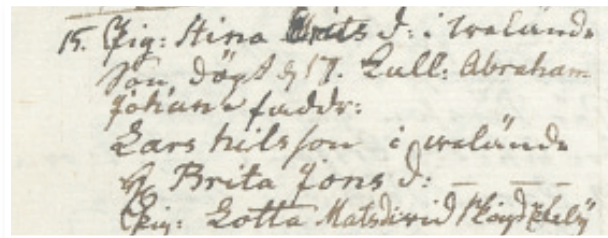 15. Pig: Stina Brits d: i Welände
Son döpt d 17. Kall: Abraham
Johan faddr:
Lars Nilsson i welände
H Brita Jons d: — — —
Pig: Lotta Matsd wid